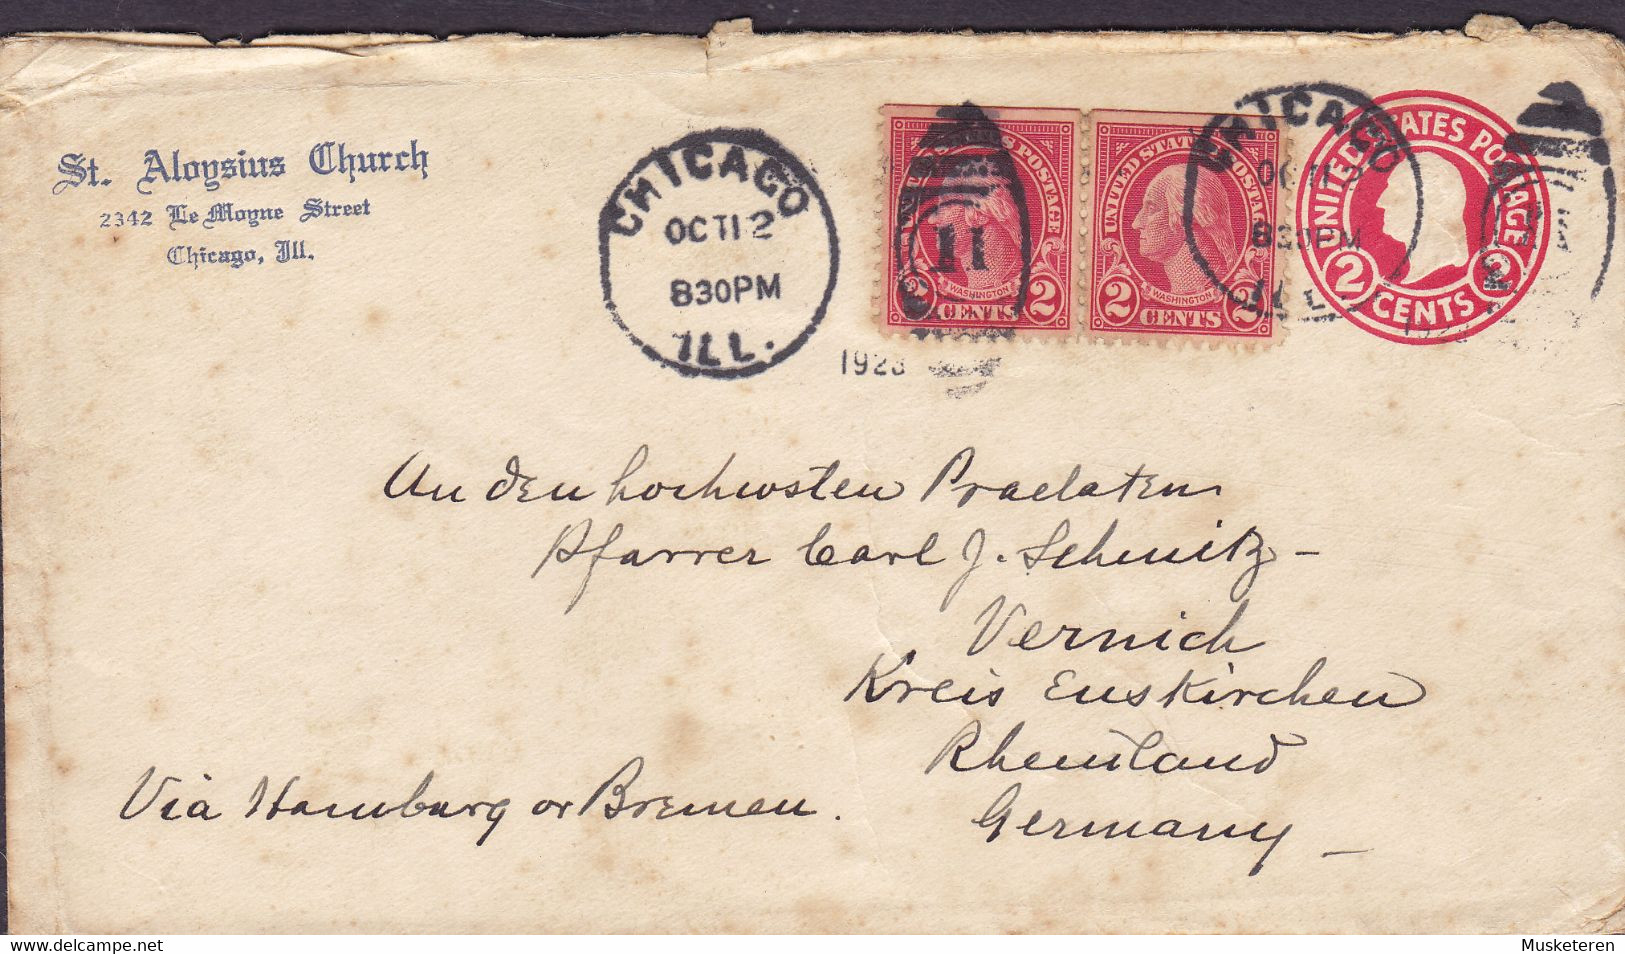 St. Aloysius Church
2342 Le Moyne Street
Chicago, Ill.
CHICAGO
OCT 12
830PM
ILL.
1923
11
UNITED STATES POSTAGE
WASHINGTON
2 CENTS 2
UNITED STATES POSTAGE
WASHINGTON
2 CENTS 2
CHICAGO
830PM
ILL.
UNITED STATES POSTAGE
2 CENTS 2
An den hochwsten Praelaten
Pfarrer Carl J. Schmitz –
Vernich
Kreis Euskirchen
Rheinland
Germany –
Via Hamburg or Bremen.
www.delcampe.net
Musketeren